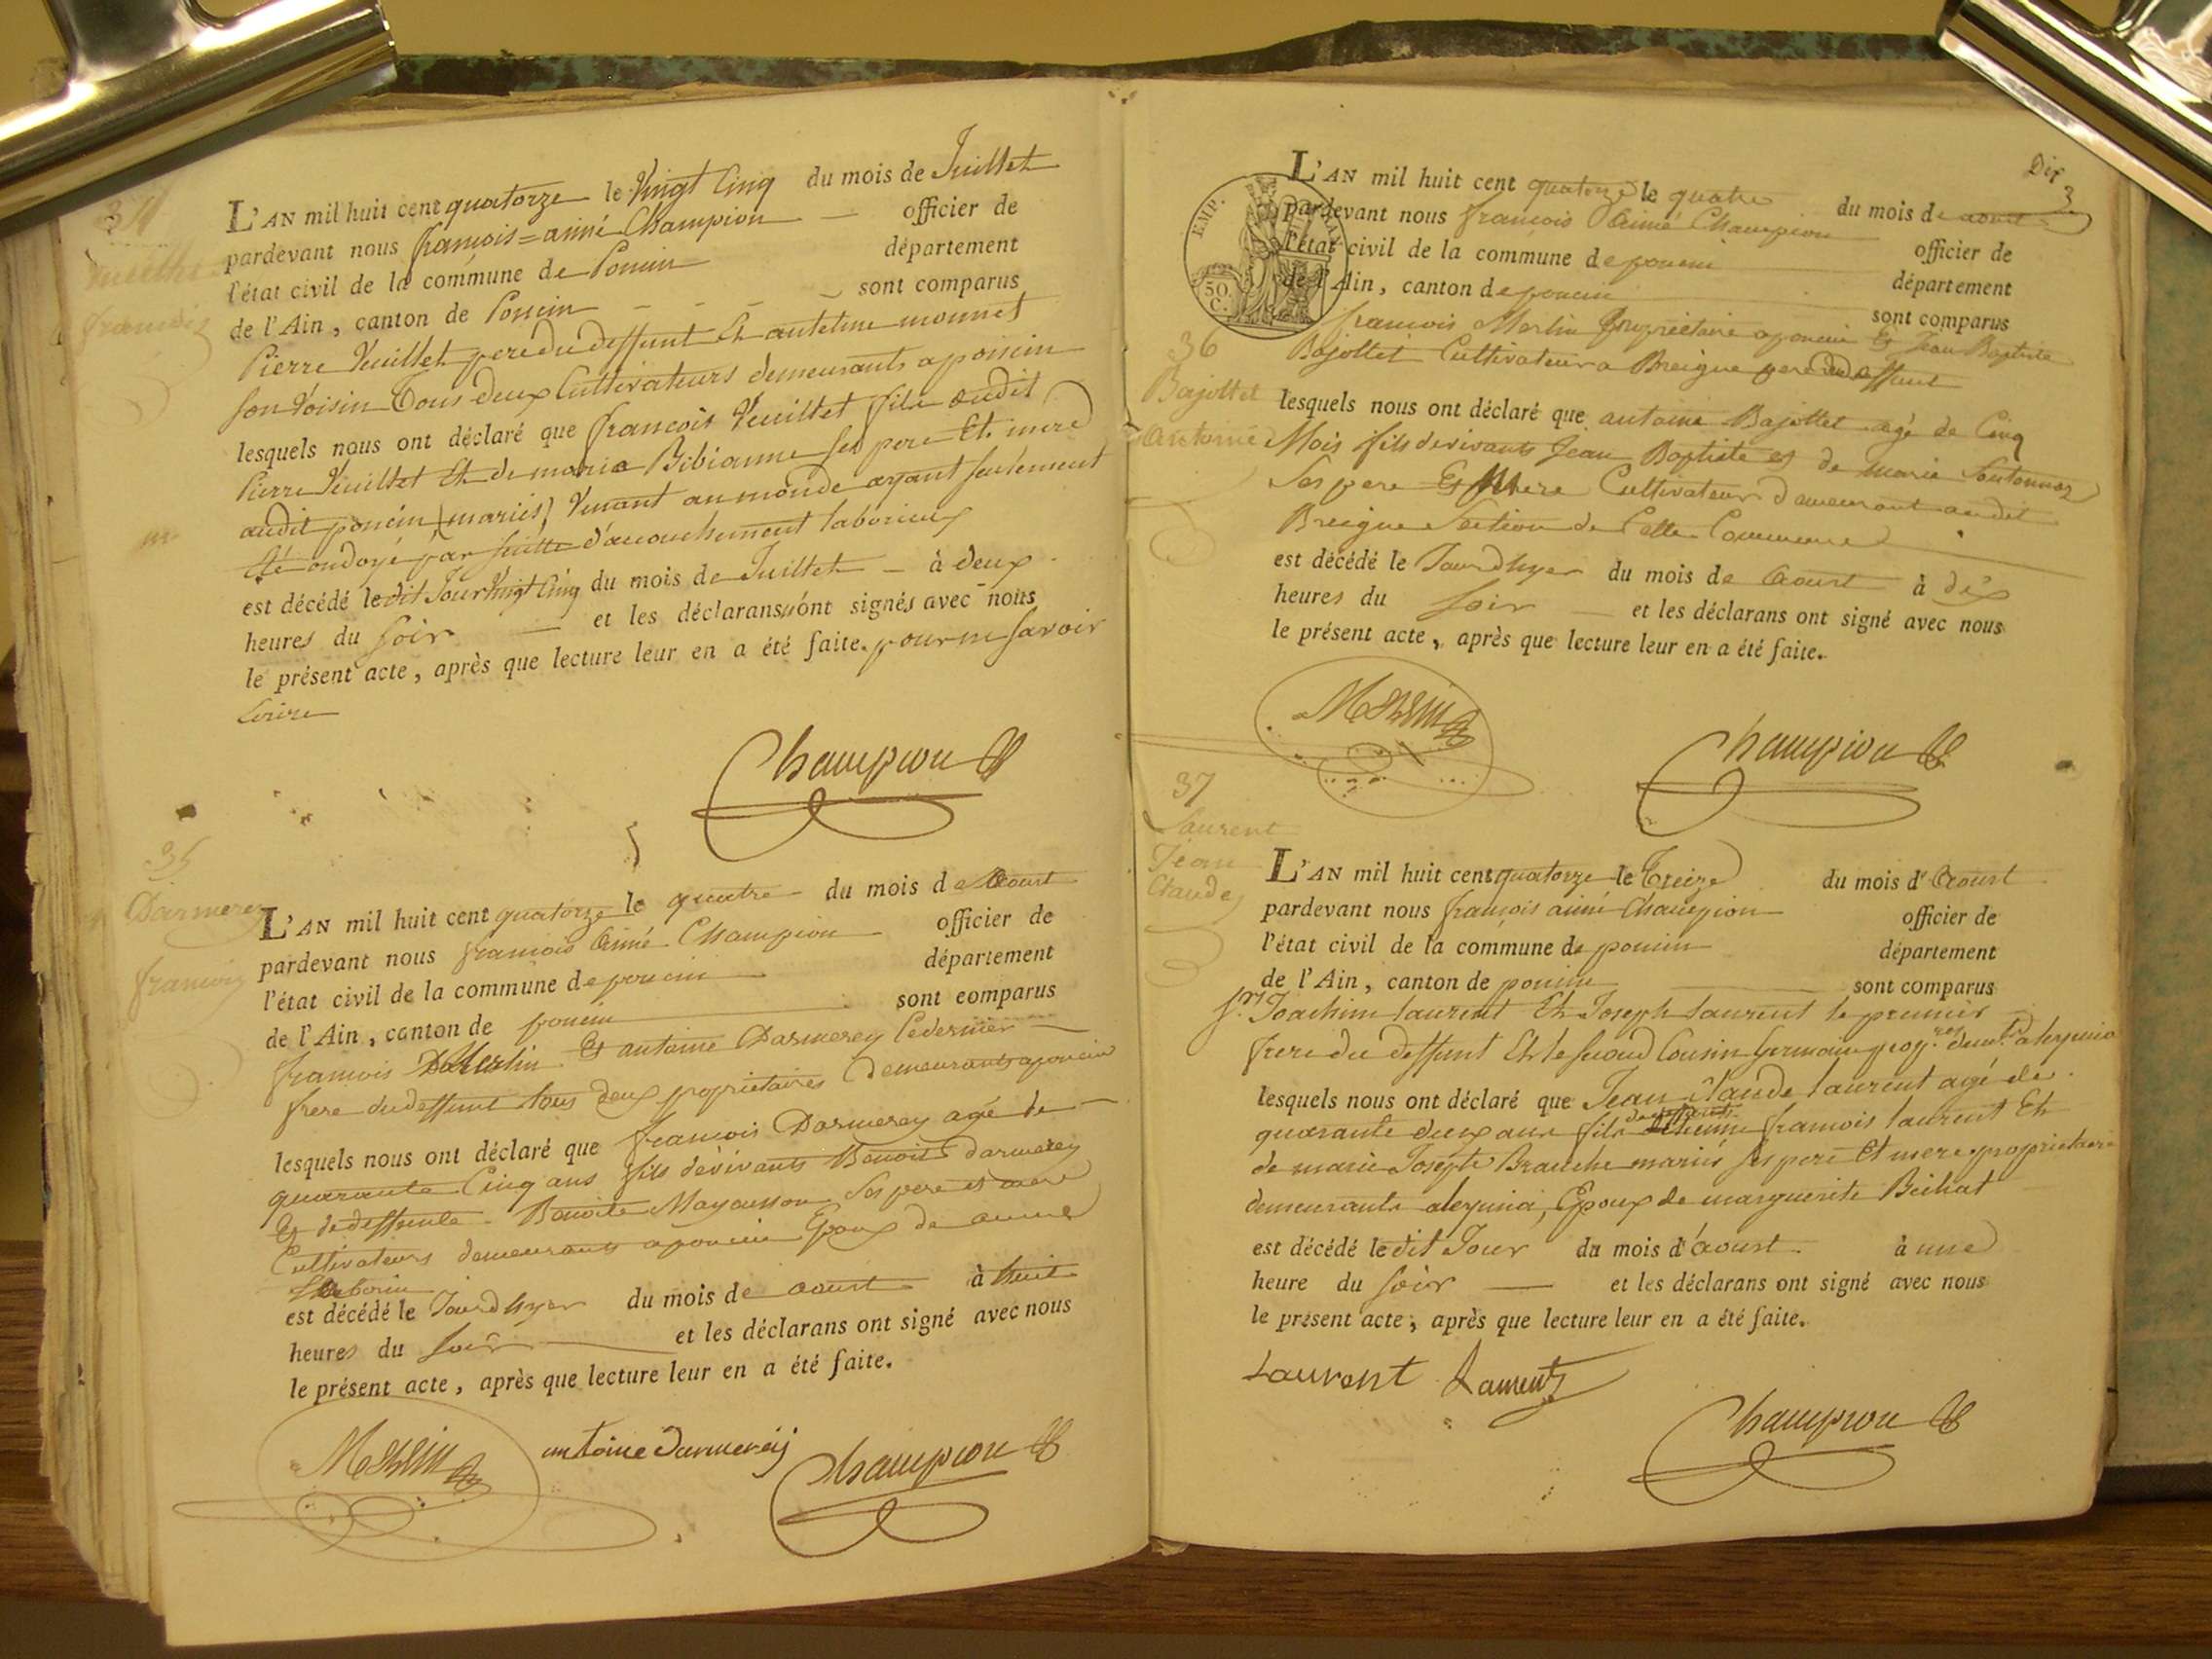 34
Veuillet
françois
L'AN mil huit cent quatorze le Vingt Cinq du mois de Juillet
pardevant nous françois=aimé Champion officier de
l'état civil de la commune de Poncin département
de l'Ain, canton de Poncin sont comparus
Pierre Veuillet pere du deffunt Et antelme monnet
son Voisin Tous deux Cultivateurs demeurants a poncin
lesquels nous ont déclaré que françois Veuillet fils audit
Pierre Veuillet Et de maria Bibianne ses pere Et mere
audit poncin (mariés) Venant au monde ayant seulement
été ondoyé par suitte d'acouchement laborieux
est décédé ledit Jour Vingt Cinq du mois de Juillet à deux
heures du soir et les déclarans n'ont signés avec nous
le présent acte, après que lecture leur en a été faite. pour ne savoir
Ecrire
Champion
35
Darmerey
françois
L'AN mil huit cent quatorze le quatre du mois de Aoust
pardevant nous françois Aimé Champion officier de
l'état civil de la commune de poncin département
de l'Ain, canton de poncin sont comparus
françois Merlin Et antoine Darmerey Ledernier
frere du deffunt tous deux proprietaires demeurants a poncin
lesquels nous ont déclaré que françois Darmerey agé de
quarante Cinq ans fils dévivants Benoit darmerey
Et de deffunte Benoite Mayousson Ses pere et mere
Cultivateurs demeurants a poncin Epoux de anne
est décédé le Jourd'hyer du mois de aoust à huit
heures du soir et les déclarans ont signé avec nous
le présent acte, après que lecture leur en a été faite.
Merlin antoine Darmereij Champion
Dix
3
EMP.
50
C.
L'AN mil huit cent quatorze le quatre du mois de aout
pardevant nous françois Aimé Champion officier de
l'état civil de la commune de poncin département
de l'Ain, canton de poncin sont comparus
françois Merlin propriétaire a poncin Et Jean Baptiste
Bajollet Cultivateur a Breigne pere du deffunt
36
Bajollet
Antoine
lesquels nous ont déclaré que antoine Bajollet agé de Cinq
Mois fils de vivants Jean Baptiste et de marie
Ses pere Et Mere Cultivateur demeurant audit
Breigne Section de Cette Commune
est décédé le Jourdhyer du mois de Aoust à dix
heures du soir et les déclarans ont signé avec nous
le présent acte, après que lecture leur en a été faite.
Merlin Champion
37
Laurent
Jean
Claude
L'AN mil huit cent quatorze le Treize du mois d'Aoust
pardevant nous françois aimé Champion officier de
l'état civil de la commune de poncin département
de l'Ain, canton de poncin sont comparus
Sr. Joachim laurent Et Joseph Laurent le premier
frere du deffunt Et le second Cousin Germain
lesquels nous ont déclaré que Jean Claude laurent agé de
quarante deux ans fils françois laurent Et
de marie Josephte Branche mariés ses pere Et mere proprietaire
demeurants aleymia, Epoux de marguerite
est décédé ledit Jour du mois d'aoust à une
heure du soir et les déclarans ont signé avec nous
le présent acte, après que lecture leur en a été faite.
Laurent Laurent
Champion